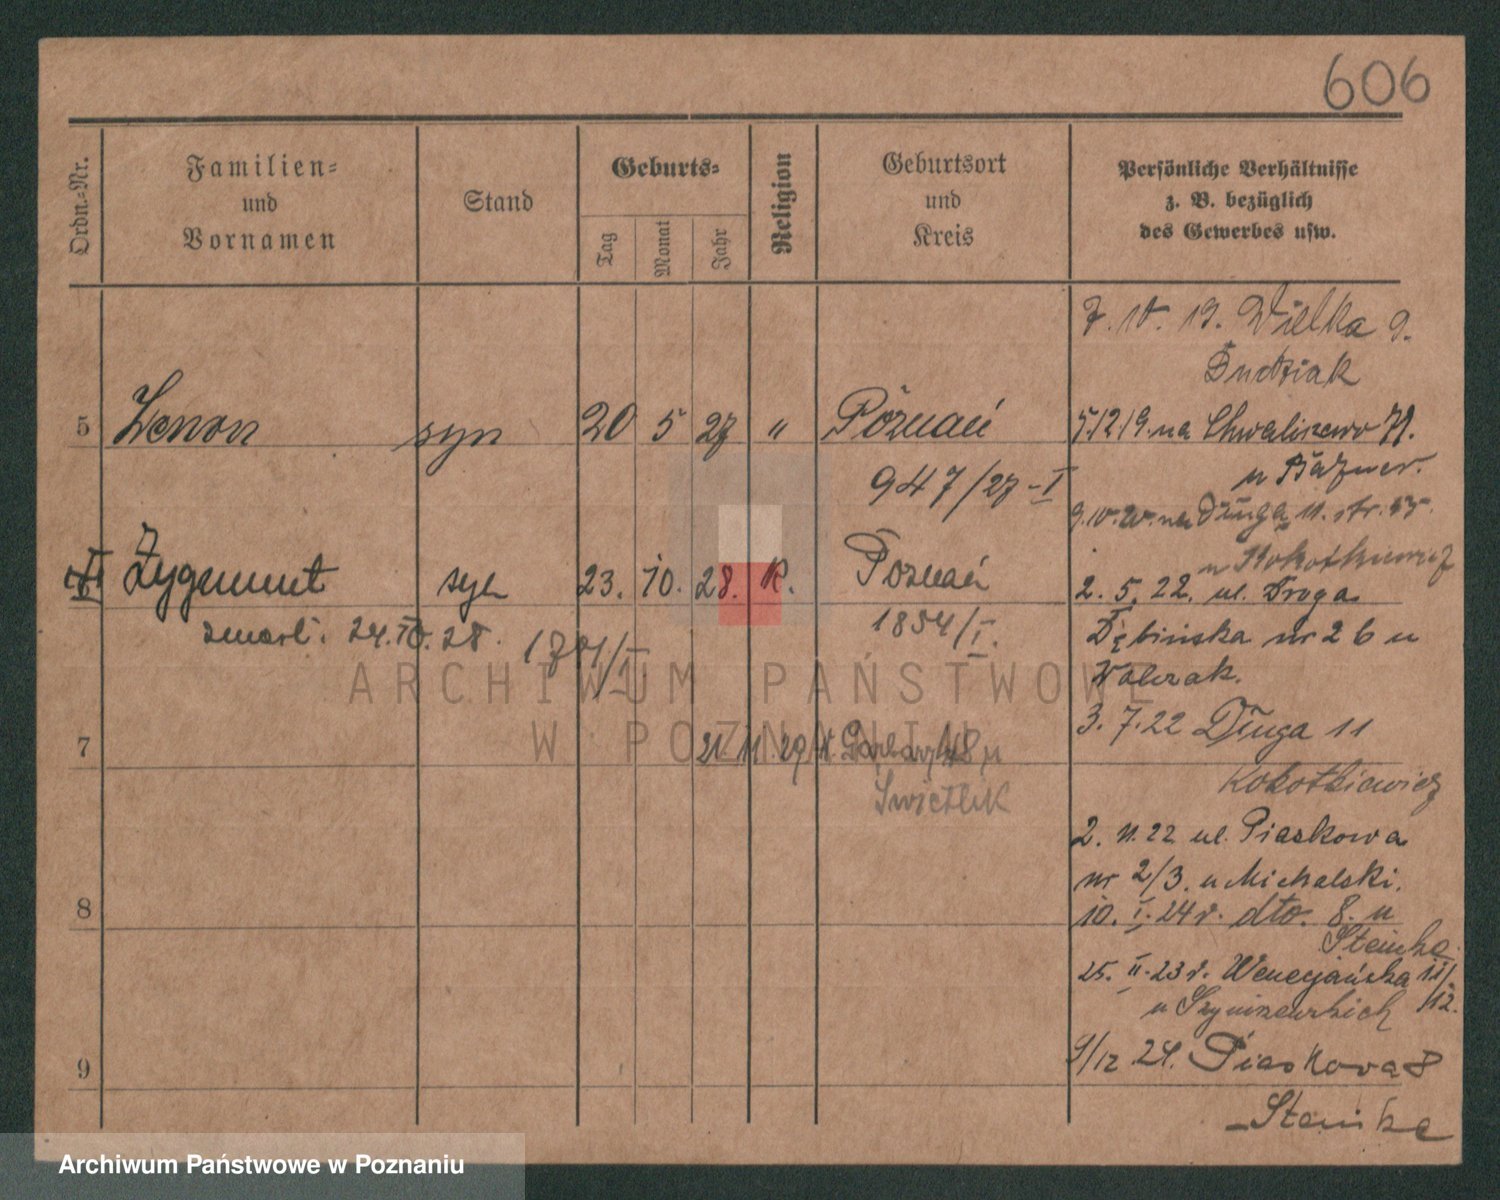 606
Ordn.-Nr.
Familien-
und
Vornamen
Stand
Geburts-
Tag
Monat
Jahr
Religion
Geburtsort
und
Kreis
Persönliche Verhältnisse
z. B. bezüglich
des Gewerbes usw.
7. IV. 19. Wielka 9.
5 Zenon syn 20 5 27 " Poznań
947/27-I
Zygmunt syn 23. 10. 28. K. Poznań
zmarł. 28. 1834/I.
7
21 11 29 Garbary 48 u
Świetlik
8
9
5/12 19. na Chwaliszewo 71.
9. IV. 20. na Długa 11. str.
u Kokotkiewicz
2. 5. 22. ul. Droga
Dębińska nr 26 u
Walczak.
3. 7. 22 Długa 11
Kokotkiewicz
2. 11. 22 ul. Piaskowa
nr 2/3. u Michalski.
10. I. 24 r. dto. 8. u
Steinke.
25. II. 23 r. Wenecjańska 11/12.
9/12 24. Piaskowa 8
Steinke
ARCHIWUM PAŃSTWOWE
W POZNANIU
Archiwum Państwowe w Poznaniu